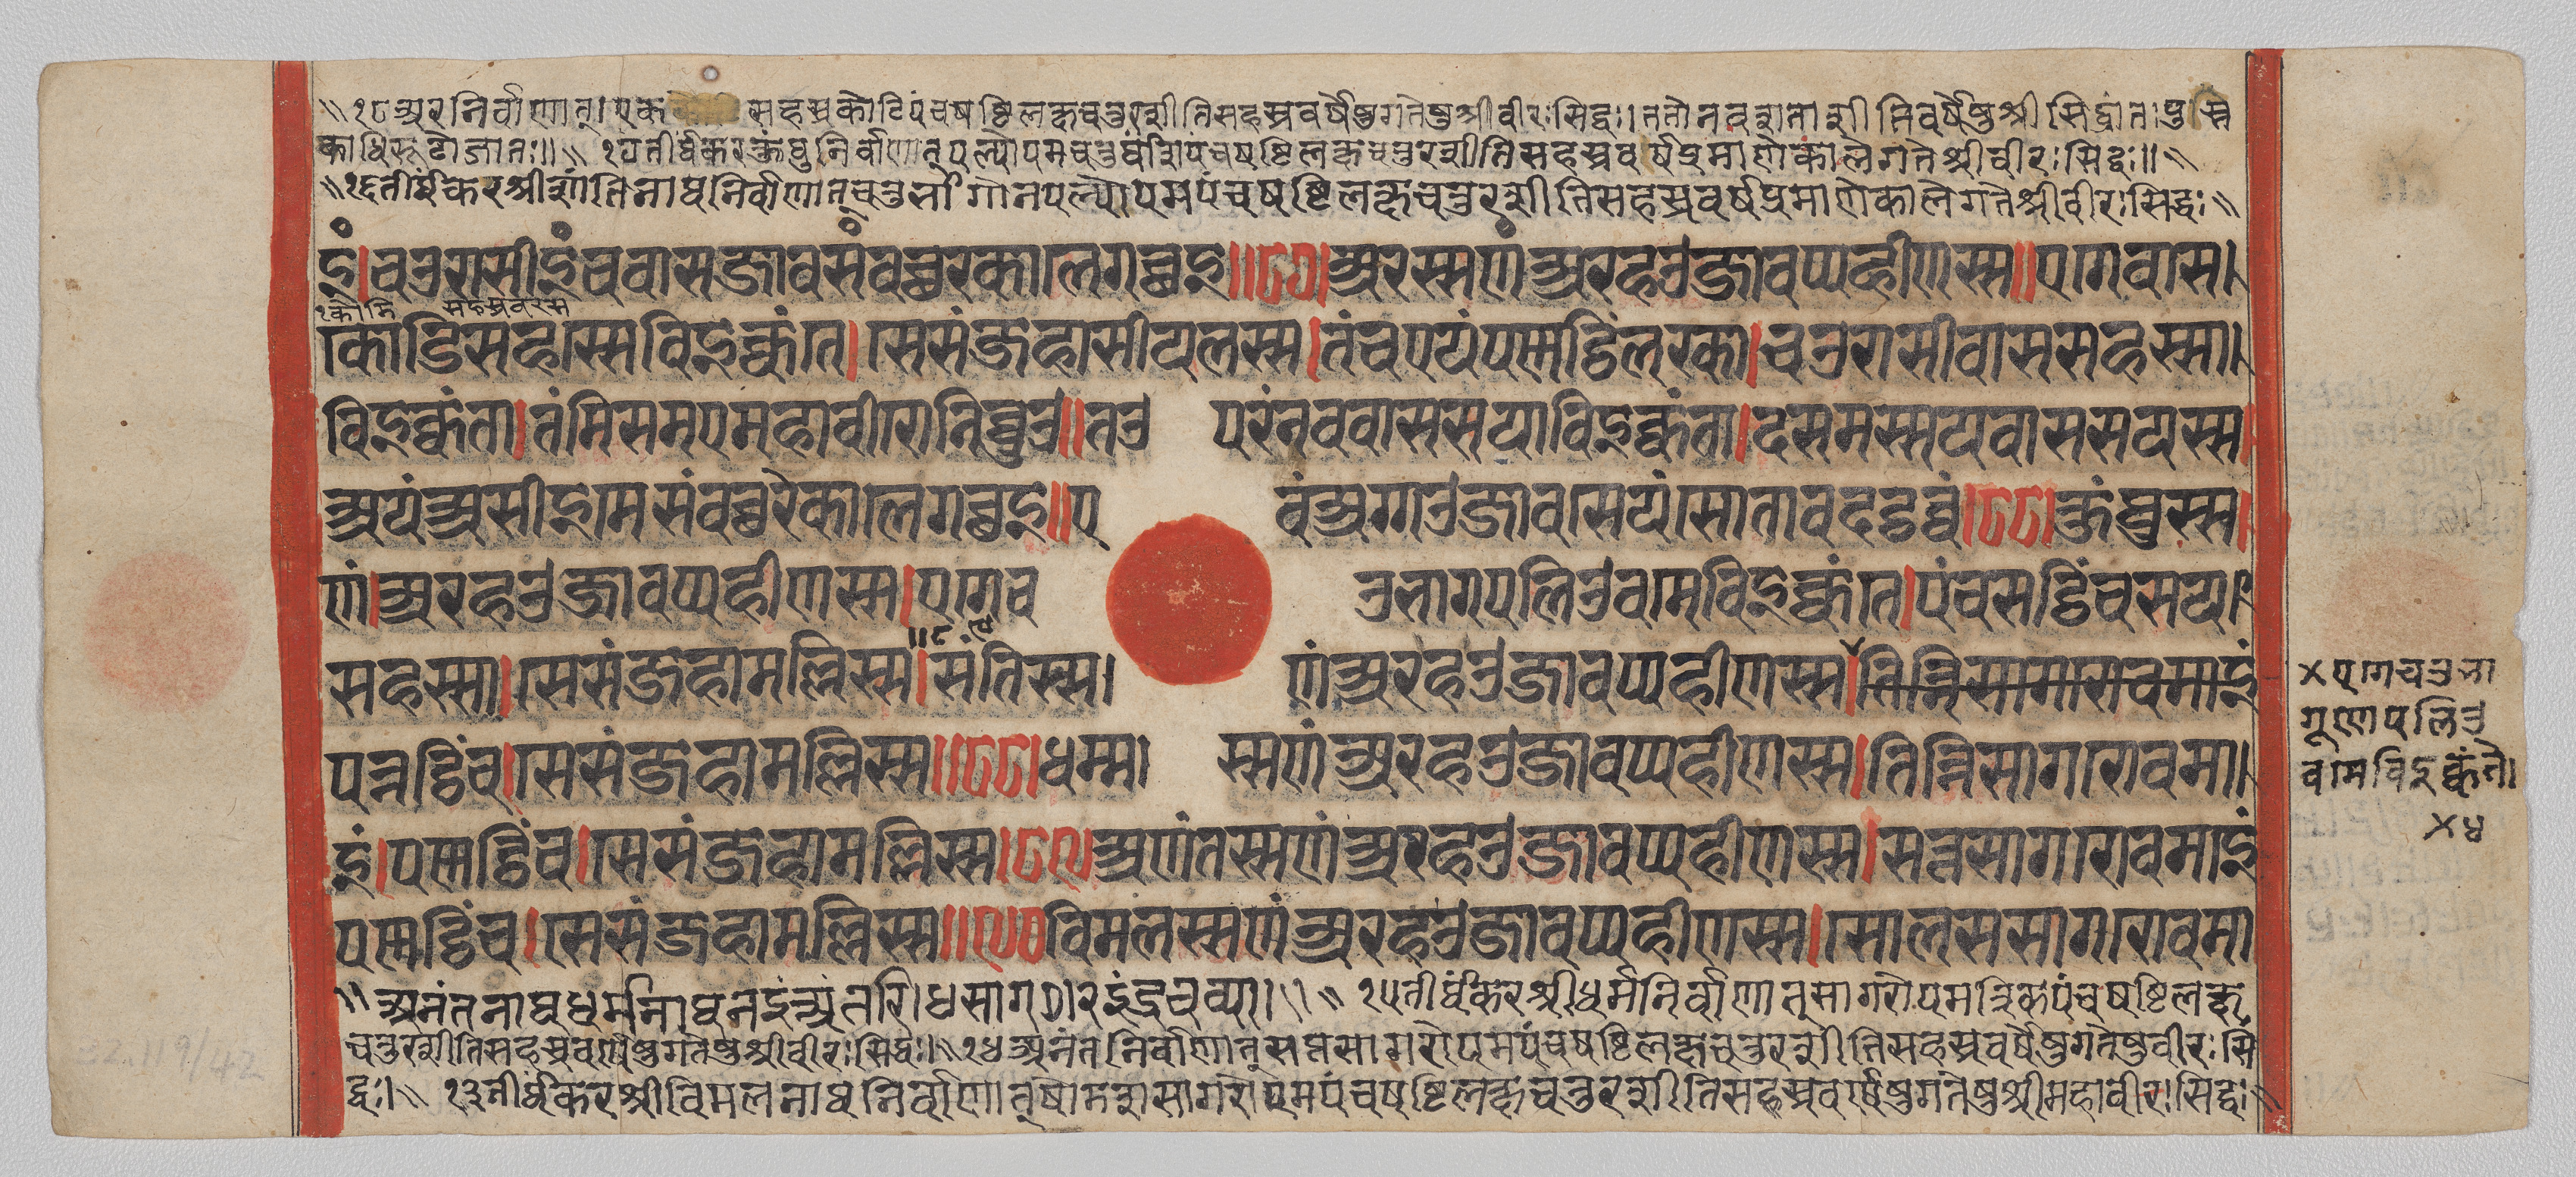 ॥१८अरनिर्वाणात्।एक सहस्रकोटिपंचषष्टिलक्षचतुरशीतिसहस्रवर्षेषुगतेषुश्रीवीरःसिद्धः।ततोनवशताशीतिवर्षेषुश्रीसिद्धांतःपुस्त
काधिरूढोजातः॥॥१७तीर्थंकरकुंथुनिर्वाणात्पल्योपमचतुर्थांशेपंचषष्टिलक्षचतुरशीतिसहस्रवर्षप्रमाणेकालेगतेश्रीवीरःसिद्धः॥॥
॥१६तीर्थंकरश्रीशांतिनाथनिर्वाणात्चतुर्भागोनपल्योपमपंचषष्टिलक्षचतुरशीतिसहस्रवर्षप्रमाणेकालेगतेश्रीवीरःसिद्धः॥
इं।चउरासीइंचवाससंवच्छरेकालेगच्छइ॥८७।अरस्सणंअरहउजावप्पहीणस्स॥एगेवास।
कोडिसहस्सेविइक्कंते।सेसंजहासीयलस्स।तंचएयंपण्णट्ठिंलरका।चउरासीवाससहस्सा।
विइक्कंता।तंमिसमएमहावीरोनिव्वुउ॥तउ परंनववाससयाविइक्कंता।दसमस्सयवाससयस्स।
अयंअसीइमेसंवच्छरेकालेगच्छइ॥ए वंअग्गउजावसेयंसोतावदट्ठव्वं।८८।कुंथुस्स।
णं।अरहउजावप्पहीणस्स।एगेच उभागपलिउवमेविइक्कंते।पंचसट्ठिंचसय।
सहस्सा।सेसंजहामल्लिस्स॥८९॥संतिस्स। णंअरहउजावप्पहीणस्स।तिन्निसागरोवमाइं
पन्नट्ठिंच।सेसंजहामल्लिस्स॥८८।धम्म। स्सणंअरहउजावप्पहीणस्स।तिन्निसागरोवमा।
इं।पण्णट्ठिंच।सेसंजहामल्लिस्स।८९।अणंतस्सणंअरहउजावप्पहीणस्स।सत्तसागरोवमाइं
पण्णट्ठिंच।सेसंजहामल्लिस्स॥९०विमलस्सणंअरहउजावप्पहीणस्स।सोलससागरोवमा
×एगेचउभा
गूणेपलिउ
वमेविइक्कंते।
×४
॥अनंतनाथधर्मनाथनइंअंतरि।४सागरोपम॥॥१५तीर्थंकरश्रीधर्मनिर्वाणात्सागरोपमत्रिकपंचषष्टिलक्ष
चतुरशीतिसहस्रवर्षेषुगतेषुश्रीवीरःसिद्धः।॥१४अनंतनिर्वाणात्सप्तसागरोपमपंचषष्टिलक्षचतुरशीतिसहस्रवर्षेषुगतेषुवीरःसि
द्धः।॥१३तीर्थंकरश्रीविमलनाथनिर्वाणात्षोडशसागरोपमपंचषष्टिलक्षचतुरशीतिसहस्रवर्षेषुगतेषुश्रीमहावीरःसिद्धः॥
32.119/42